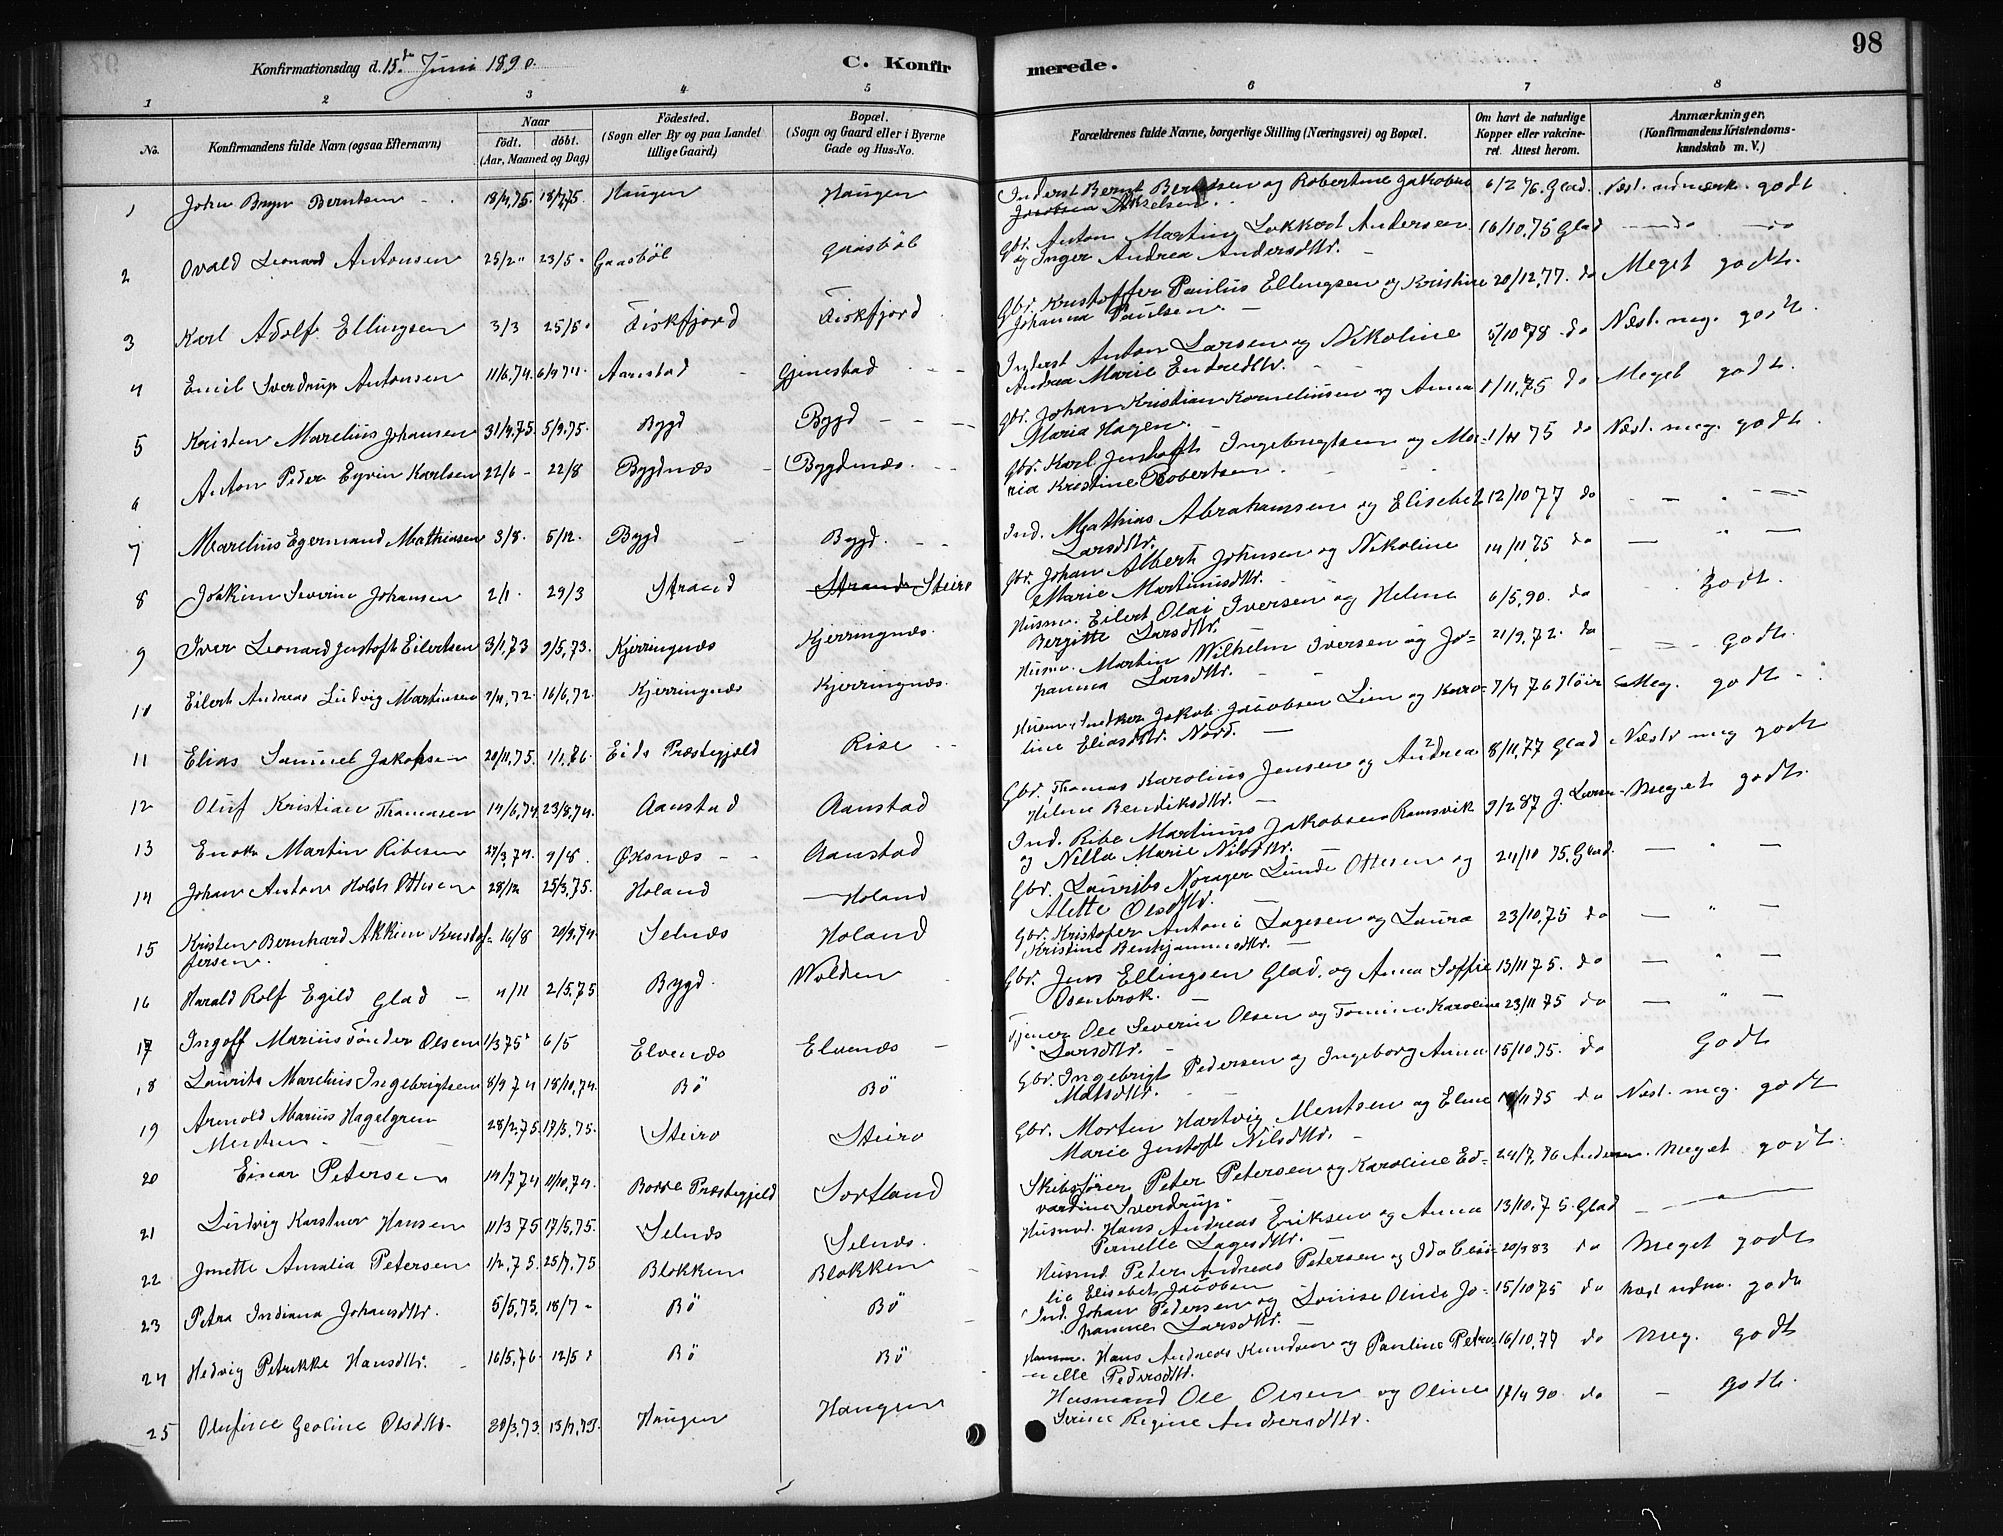 98
Konfirmationsdag d. 15de Juni 1890. C. Konfirmerede.
1 2 3 4 5 6 7 8
No. Konfirmandens fulde Navn (ogsaa Efternavn) Naar født. døbt. (Aar, Maaned og Dag) Fødested. (Sogn eller By og paa Landet tillige Gaard) Bopæl. (Sogn og Gaard eller i Byerne Gade og Hus-No. Forældrenes fulde Navne, borgerlige Stilling (Næringsvei) og Bopæl. Om havt de naturlige Kopper eller vakcineret. Attest herom. Anmærkninger, (Konfirmandens Kristendomskundskab m. V.)
1 Johan Berntsen 18/4,75. Haugen Haugen Inderst Bernt Berntsen og Robertine Jakobine 6/2 76. Glad. Næst. udmærk. godt
Akselsen.
2 Ovald Leonard Antonsen 25/2 " 23/5 " Gaasböl Gaasböl Gbr. Anton Martin Lokkert Andersen 16/10,75 Glad — do — do
og Inger Andrea Andersdtr.
3 Karl Adolf Ellingsen 3/3 25/5 " Fiskfjord Fiskfjord Gbr. Kristoffer Paulus Ellingsen og Kristine 20/12,77. do Meget godt.
Johanna Paulsen.
4 Emil Sverdrup Antonsen 11/6,74. Aanstad Gjinestad Inderst Anton Larsen og Nikoline 5/10 78. do Næst. meg. godt.
Andrea Marie Endredtr.
5 Kristen Marelius Johansen 5/9,75. Bygd Bygd Gbr. Johan Kristian Kornelinsen og Anna 1/11,75 do Meget godt.
Maria Hagen.
6 Anton Peder Eyvin Karlsen 22/6 - 22/8 Bygdnæs Bygdnæs. Gbr. Karl Jentoft Ingebrigtsen og Ma- do Næst. meg. godt.
ria Kristine Robertsen.
7 Marelius Egermand Mathiasen 3/8. 5/12. Bygd Bygd. Ind. Mathias Abrahamsen og Elisebet 12/10 77 do — " —
Larsdtr.
8 Joakim Severin Johansen 2/1. 29/3 Strand Strand Steiro Gbr. Johan Albert Johnsen og Nikoline 14/11,75 do — " —
Marie Martinusdtr.
9 Iver Leonard Jentoft Eilertsen 3/1,73 9/5,73. Kjerringnæs Kjerringnæs. Husm. Eilert Olai Iversen og Helene 6/5,90. do Godt.
Bergitte Larsdtr.
10 Eilert Andreas Ludvig Martinsen 16/6,72. Kjerringnæs Kjerringnæs. Husm. Martin Wilhelm Iversen og Jo- 21/9,72. do — godt.
hanna Larsdtr.
11 Elias Samuel Jakobsen 20/11,75. 1/1,76. Eids Præstegjæld Rise Jakob Jacobsen Lien og Karo- Meg. godt
line Eliasdtr. Nord.
12 Oluf Kristian Thomassen 14/6,74. 23/8,74. Aanstad Aanstad Gbr. Thomas Karolius Jensen og Andrea 8/11,77 Glad Næst meg godt
Helene Bendiksdtr.
13 Enok Martin Ribesen 9/8. Øksnæs Aanstad Ind. Ribe Martinus Jakobsen Ramsvik 9/2 87 J. Larsen Meget godt.
og Nilla Marie Nilsdtr.
14 Johan Anton Holst Ottesen 28/12 25/3,75. Holand Holand Gbr. Laurits Norager Lunde Ottesen og 24/10 75. Glad. — " —
Alette Olsdtr.
15 Kristen Bernhard Akkim Kristof- 16/8 20/9,74. Selnæs Holand Gbr. Kristofer Antoni Lagesen og Laura 23/10,75 do — " —
fersen. Kristine Benhjaminsdtr.
16 Harald Rolf Egild Glad 4/11 2/5,75 Bygd. Wolden Gbr. Jens Ellingsen Glad. og Anna Soffie 13/11 75. do — " —
Osenbrok.
17 Ingolf Marius Tønder Olsen 1/3 75 6/5 Elvenæs Elvenæs Tjener Ole Severin Olsen og Tomine Karoline 23/11 75 do — " —
Larsdtr.
18 Laurits Marelius Ingebrigtsen 8/9 74 18/10,74. Bö Bö Gbr. Ingebrigt Pedersen og Ingeborg Anna 15/10,75. do Godt
Matsdtr.
19 Arnold Marius Hagelgren 28/2,75. 17/5,75. Steiro Steiro Gbr. Morten Hartvig Mentsen og Eline do Næst. meg. godt
Mentsen Marie Jentoft Nilsdtr.
20 Einar Petersen 14/7 74 11/10,74. Borre Præstegjeld Sortland Skibsfører Peter Petersen og Karoline Ed- 24/7,76 Andersen. Meget godt.
vardine Sverdrup.
21 Ludvig Karstner Hansen 11/3,75 17/5,75. Selnæs Selnæs. Husmd. Hans Andreas Eriksen og Anna 13/10,75. Glad — " —
Pernelle Lagesdtr.
22 Jonette Amalia Petersen 1/2,75. 25/7,75 Blokken Blokken Husmd. Peter Andreas Petersen og Ida Cesi- 20/9 83 do Meget godt
lie Elisebet Jacobsen
23 Petra Indiana Johansdtr. 5/5,75. 18/7 - Bö Bö Ind. Johan Pedersen og Lovise Olivia Jo- 15/10 75 do næst udm. godt
hanne Larsdtr.
24 Hedvig Petrikke Hansdtr. 16/5,76. 12/5 Bö Bö Husm. Hans Andreas Knudsen og Pauline Petro- 16/10,77 do Meg. godt
nelle Pedersdtr.
25 Olufine Geoline Olsdtr. 20/3,73. Haugen Haugen Husmand Ole Olsen og Oline 17/4 90. do — godt.
Serine Regine Andersdtr.